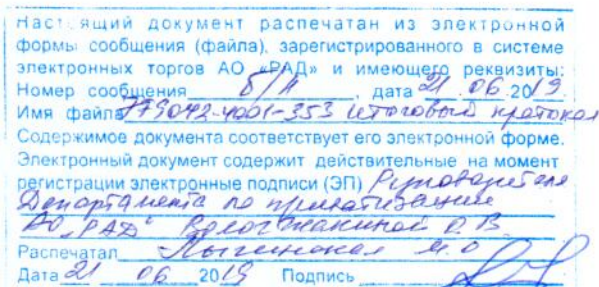 Настоящий документ распечатан из электронной
формы сообщения (файла), зарегистрированного в системе
электронных торгов АО «РАД» и имеющего реквизиты:
Номер сообщения б/н, дата 21 06 2019
Имя файла 779042-4001-353 итоговый протокол
Содержимое документа соответствует его электронной форме.
Электронный документ содержит действительные на момент
регистрации электронные подписи (ЭП) Руководителя
Департамента по приватизации
АО "РАД" В.В.
Распечатал
Дата 21 06 2019 Подпись